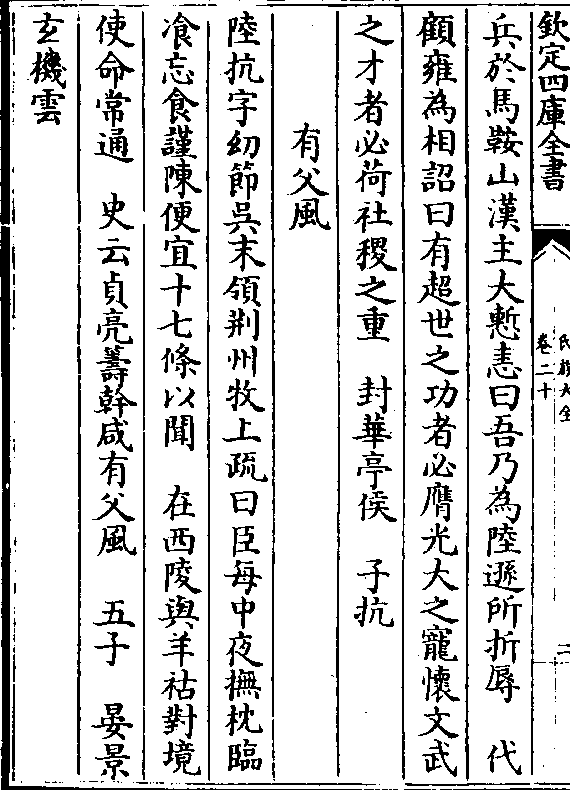 欽定四庫全書
氏族大全
卷二十
二
兵於馬鞍山漢主大慙恚曰吾乃為陸遜所折辱　代
顧雍為相詔曰有超世之功者必膺光大之寵懷文武
之才者必荷社稷之重　封華亭侯　子抗
有父風
陸抗字幼節吳末領荆州牧上疏曰臣每中夜撫枕臨
飡忘食謹陳便宜十七條以聞　在西陵與羊祜對境
使命常通　史云貞亮籌幹咸有父風　五子　晏景
玄機雲